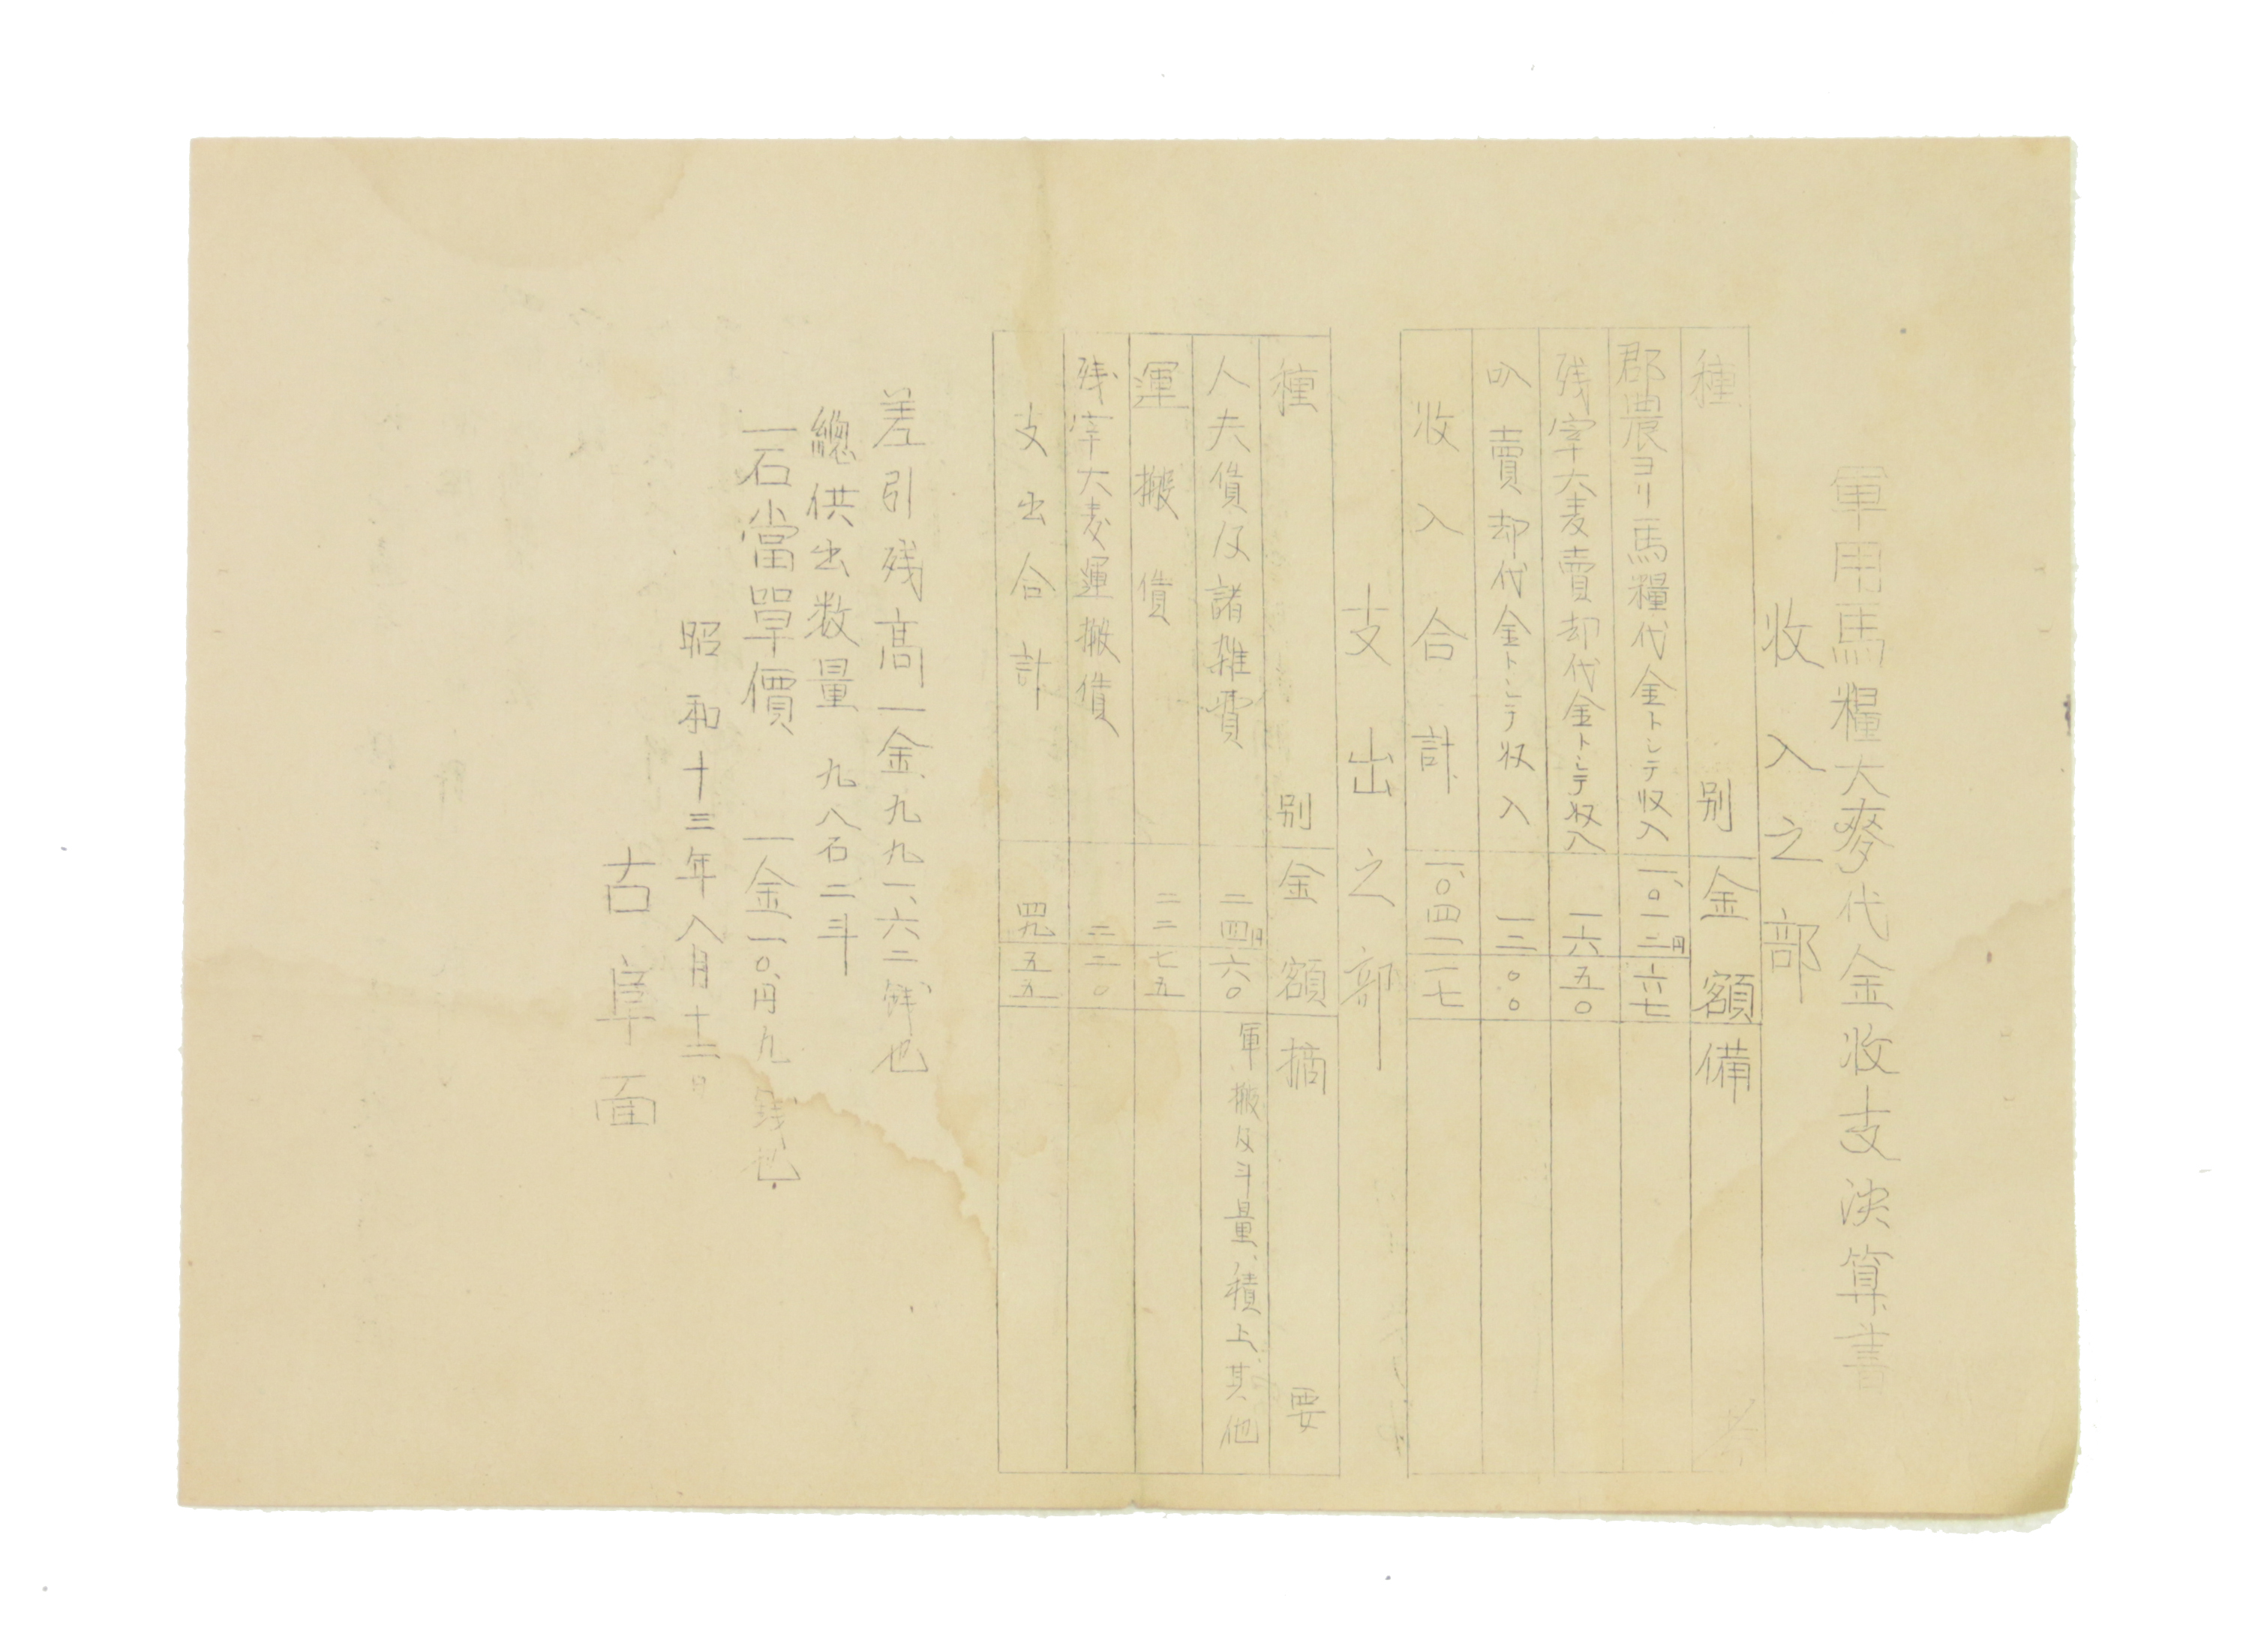 軍用馬糧大麥代金收支決算書
收入之部
種別 金額 備考
郡農ヨリ馬糧代金トシテ収入 一、〇一二円 六七
残宰大麦賣却代金トシテ収入 一六 五〇
叺賣却代金トシテ収入 一二 〇〇
收入合計 一、〇四一 一七
支出之部
種別 金額 摘要
人夫賃及諸雑費 二四円 六〇 運搬及斗量、積上、其他
運搬賃 二二 七五
残宰大麦運搬賃 二 二〇
支出合計 四九 五五
差引残高一金九九一、六二錢也
總供出数量 九八石二斗
一石當單價 一金一〇円九錢也
昭和十三年八月十二日
古阜面